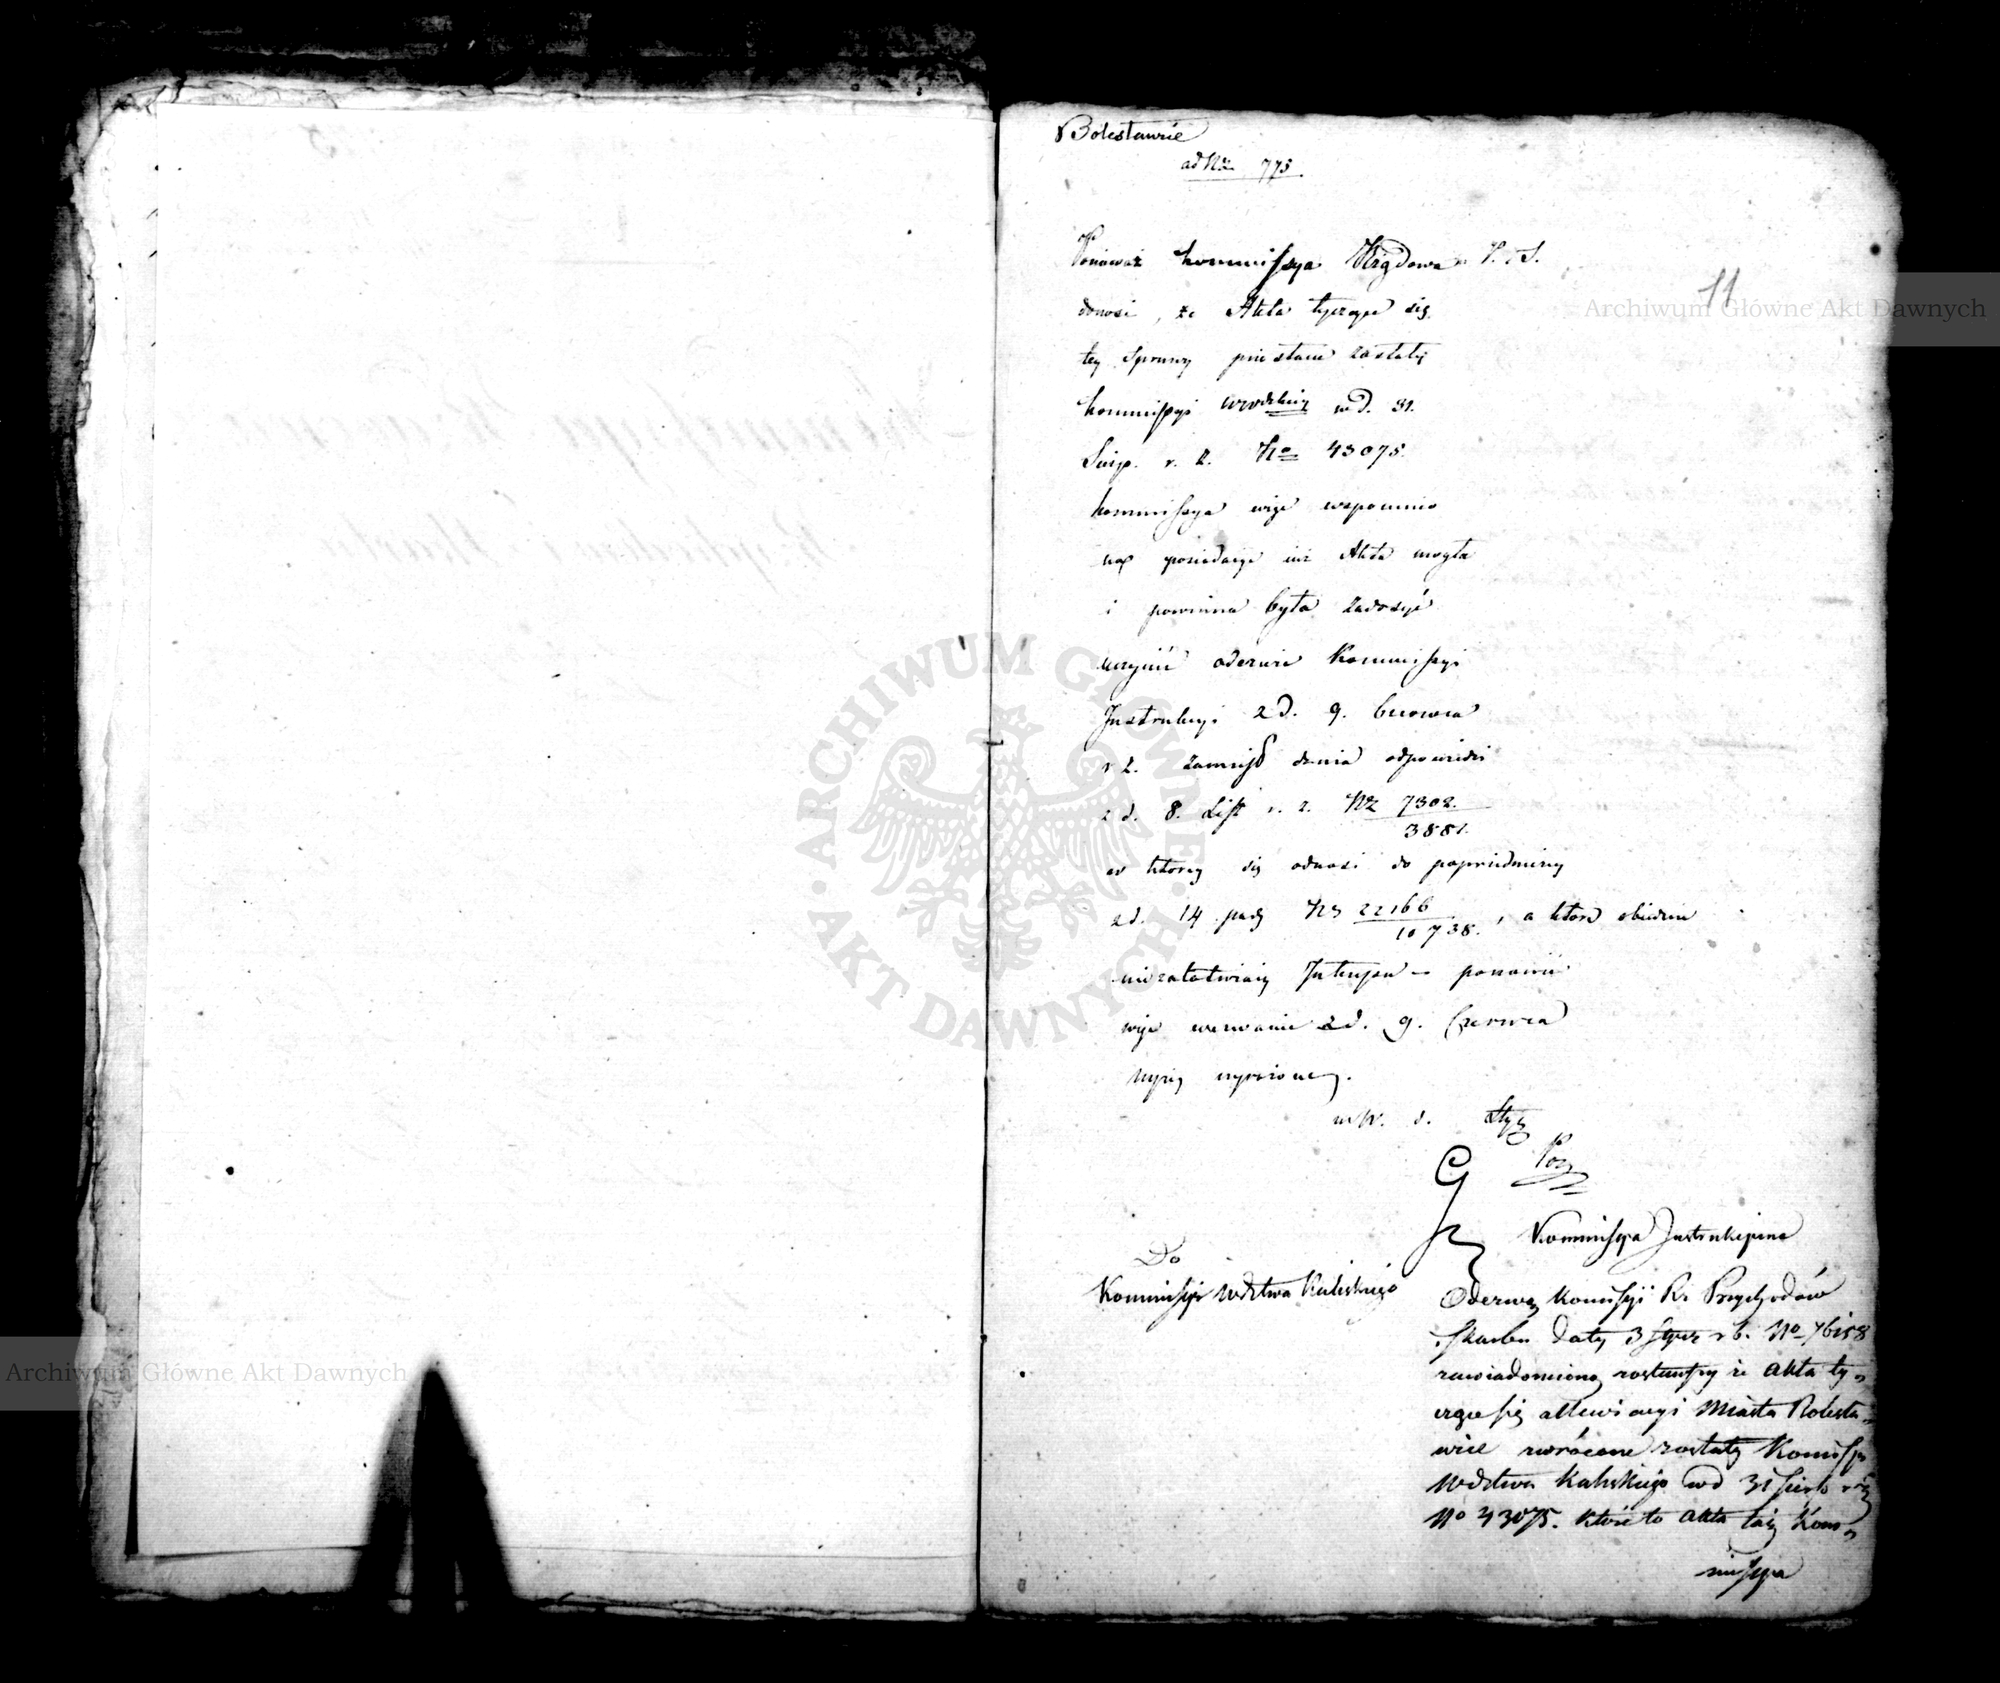 Bolesławiec
ad Nr 775
11
Ponieważ Kommissya Rządowa P. i S.
donosi, że Akta tyczące się
tey Sprawy przesłane zostały
Kommissyi Wdzkiey w d. 31.
Sierp. r. z. No 43075.
Kommissya więc wspomnio
na posiadając już Akta mogła
i powinna była zadosyć
uczynić odezwie Kommissyi
Instrukcyi z d. 9. Czerwca
r z. zamiast dania odpowiedzi
z d. 8. List r. z. Nr 7302.
3881.
w ktorey się odnosi do poprzedniczey
z d. 14 paź Nr 22166
10738. , a ktore obiedwie
niezałatwiaią Interessu – ponowić
więc wezwanie z d. 9. Czerwca
wyżey wyrzeczone.
w W. d. Stycz
Do
Kommissyi Wdztwa Kaliskiego
Kommissya Instrukcyina
Odezwą Komissyi Rz Przychodów
Skarbu daty 3 Stycz r b. No 76158
zawiadomioną zostawszy że Akta ty-
czące się allewiacyi Miasta Bolesła-
wiec zwrócone zostały Komissyi
Wdztwa Kaliskiego w d 31 Sierp r z
No 43075. które to Akta taż Kom-
missya
Archiwum Główne Akt Dawnych
Archiwum Główne Akt Dawnych
ARCHIWUM GŁÓWNE
AKT DAWNYCH